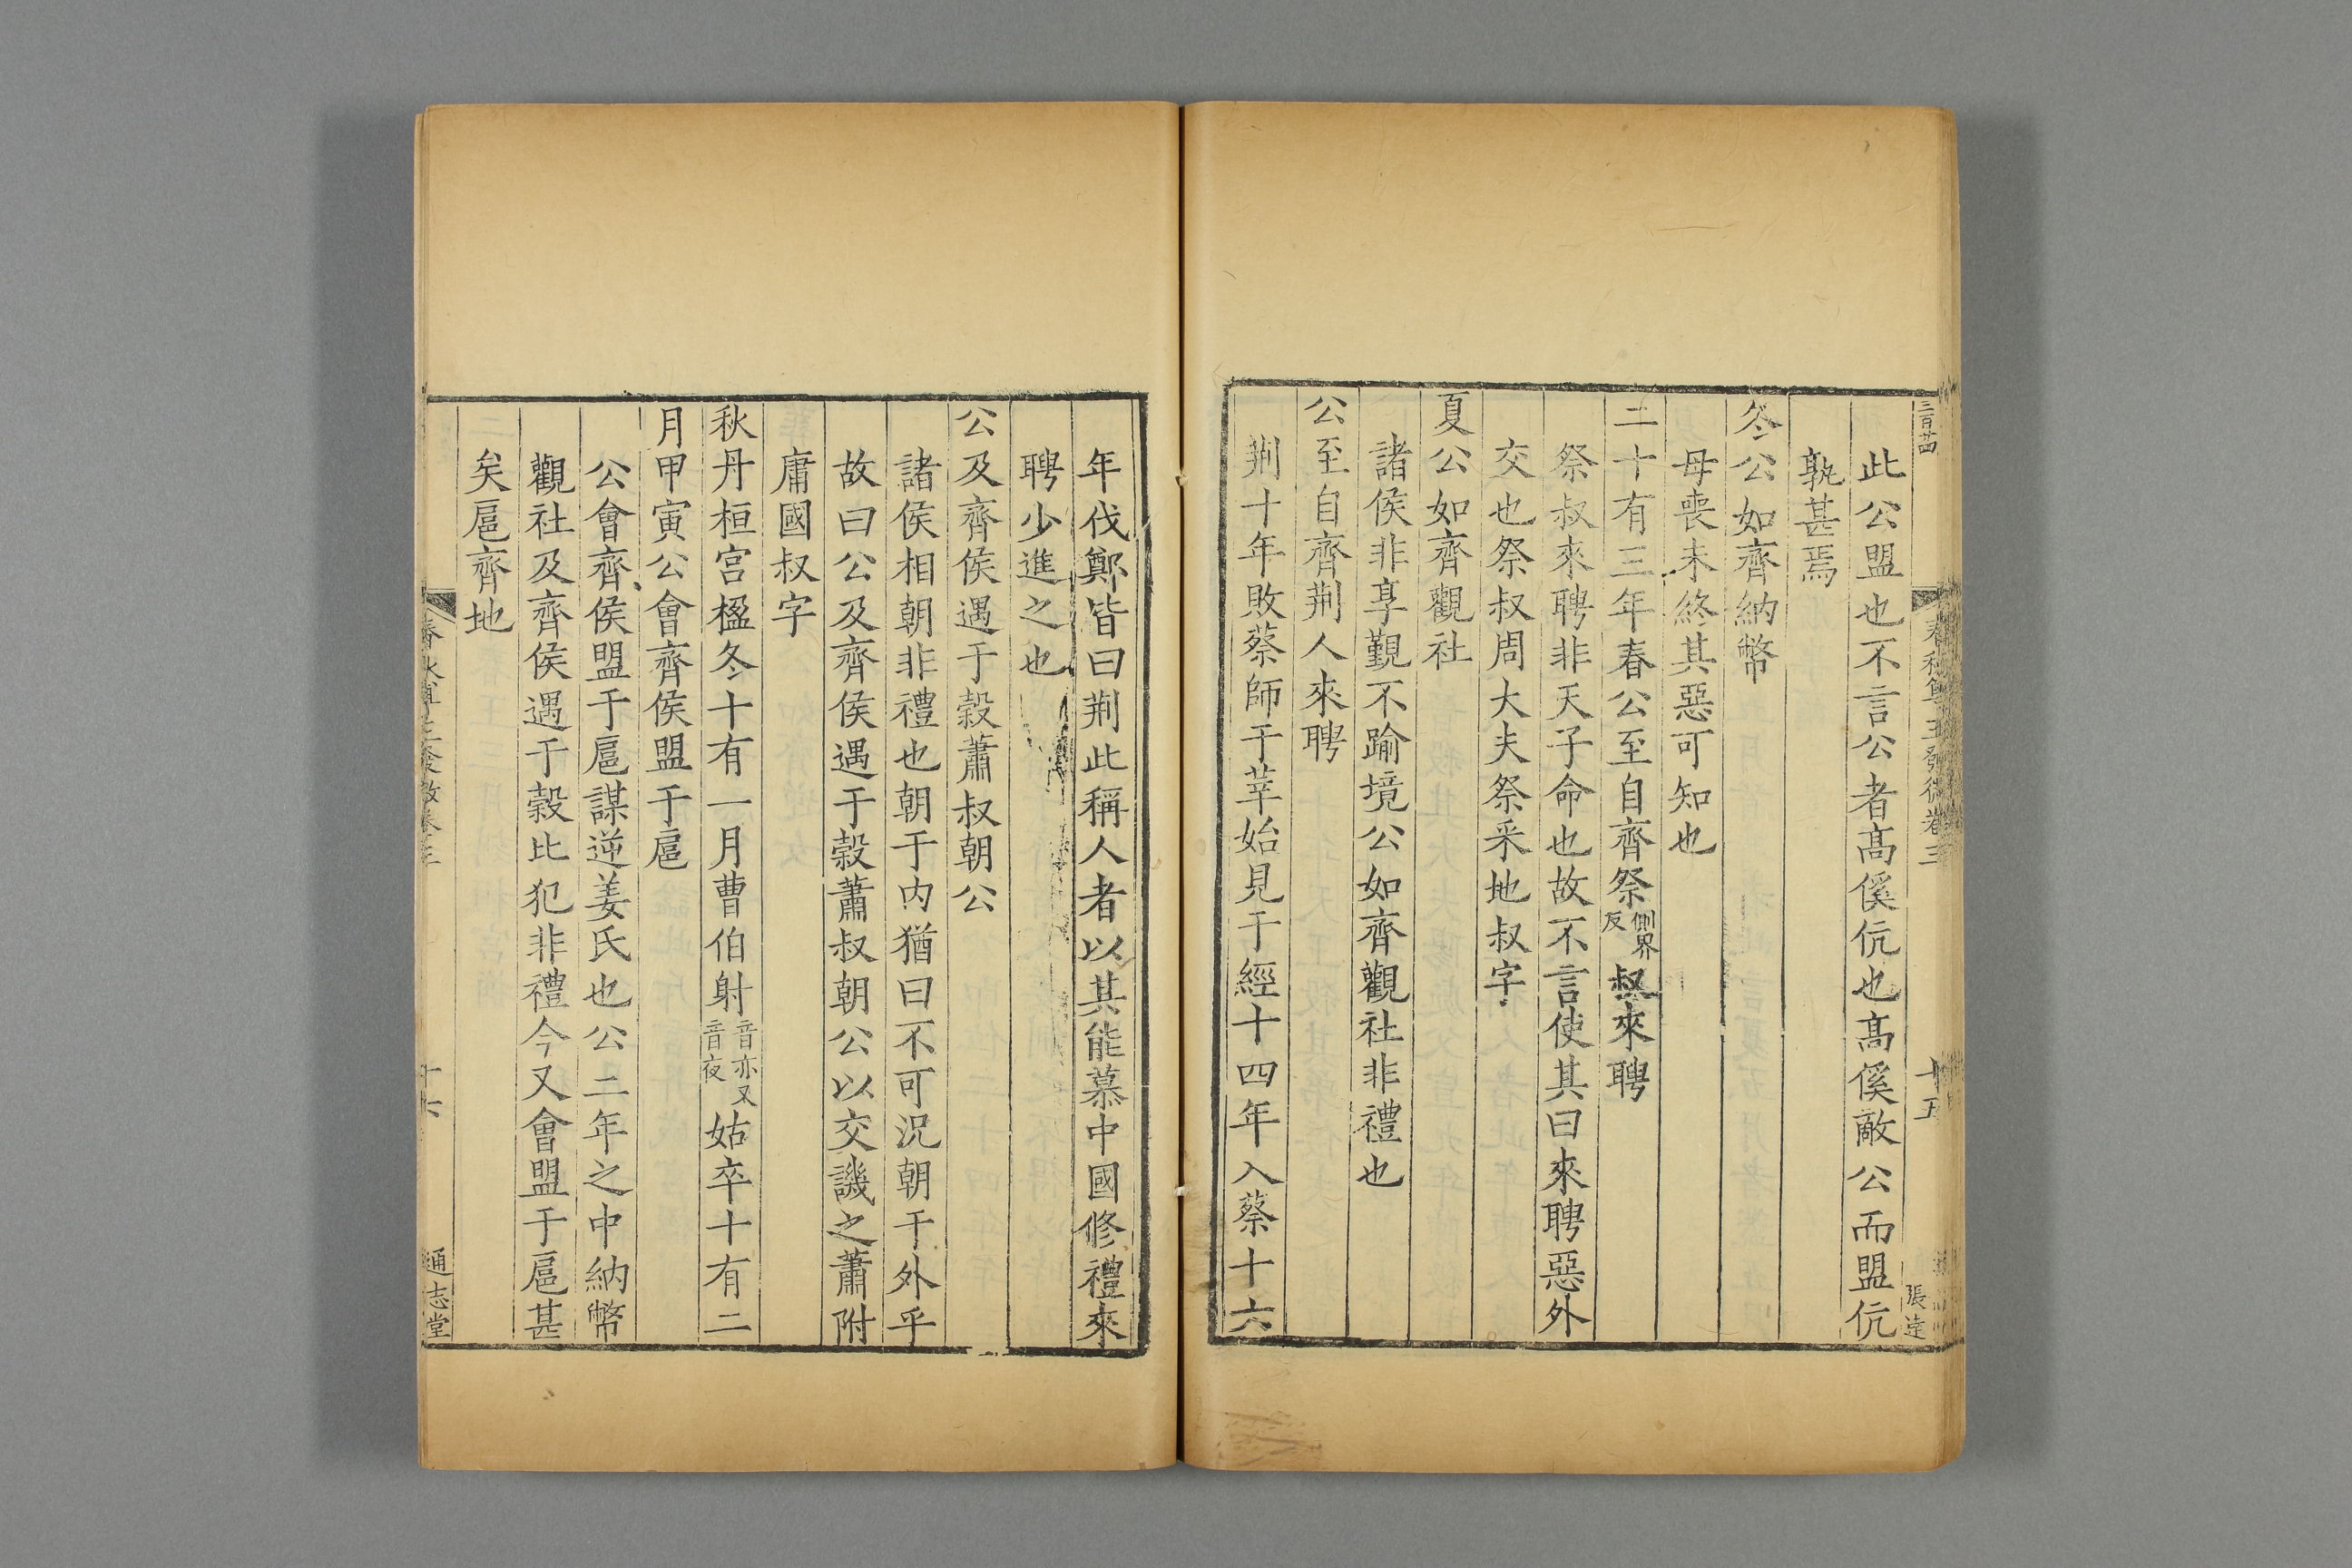 三百廿四
春秋尊王發微卷三
十五
張逵
此公盟也不言公者高傒伉也高傒敵公而盟伉
孰甚焉
冬公如齊納幣
母喪未終其惡可知也
二十有三年春公至自齊祭側界反叔來聘
祭叔來聘非天子命也故不言使其曰來聘惡外
交也祭叔周大夫祭采地叔字
夏公如齊觀社
諸侯非享覲不踰境公如齊觀社非禮也
公至自齊荆人來聘
荆十年敗蔡師于莘始見于經十四年入蔡十六
年伐鄭皆曰荆此稱人者以其能慕中國修禮來
聘少進之也
公及齊侯遇于穀蕭叔朝公
諸侯相朝非禮也朝于内猶曰不可況朝于外乎
故曰公及齊侯遇于穀蕭叔朝公以交譏之蕭附
庸國叔字
秋丹桓宫楹冬十有一月曹伯射音亦又音夜姑卒十有二
月甲寅公會齊侯盟于扈
公會齊侯盟于扈謀逆姜氏也公二年之中納幣
觀社及齊侯遇于穀比犯非禮今又會盟于扈甚
矣扈齊地
春秋尊王發微卷三
十六
通志堂